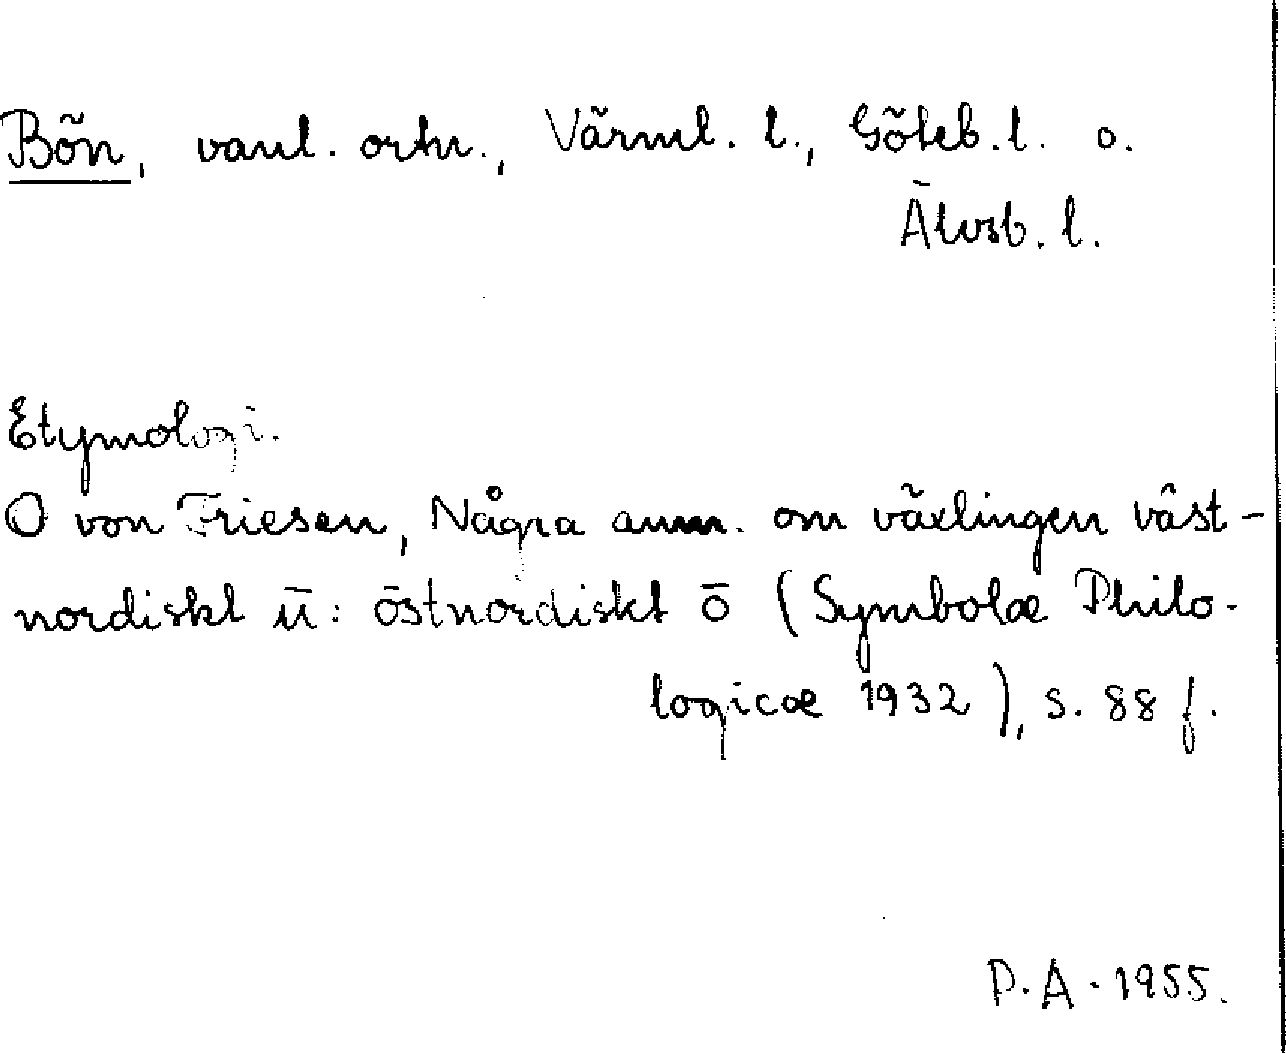 Bön, vanl. ortn., Värml. l., Göteb. l. o.
Älvsb. l.
Etymologi.
O von Friesen, Några anm. om växlingen väst-
nordiskt ū: östnordiskt ō (Symbolæ Philo-
logicæ 1932), s. 88 f.
P. A. 1955.